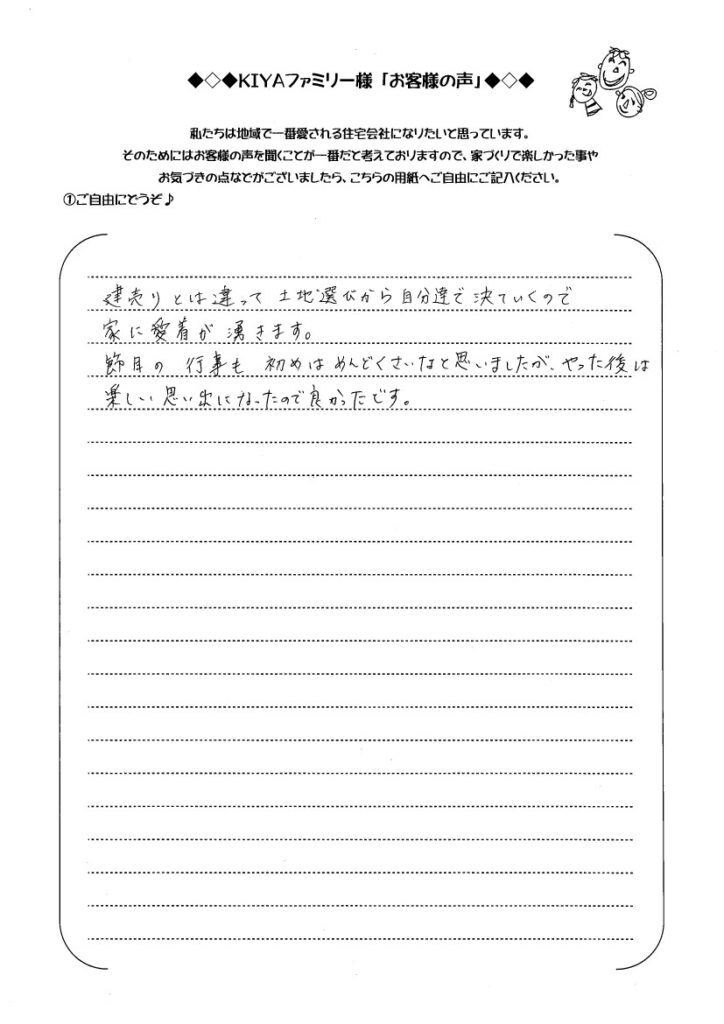 ◆◇◆KIYAファミリー様「お客様の声」◆◇◆
私たちは地域で一番愛される住宅会社になりたいと思っています。
そのためにはお客様の声を聞くことが一番だと考えておりますので、家づくりで楽しかった事や
お気づきの点などがございましたら、こちらの用紙へご自由にご記入ください。
①ご自由にどうぞ♪
建売りとは違って 土地選びから自分達で決ていくので
家に愛着が湧きます。
節目の 行事も 初めは めんどくさいなと思いましたが、やった後は
楽しい思い出になったので良かったです。